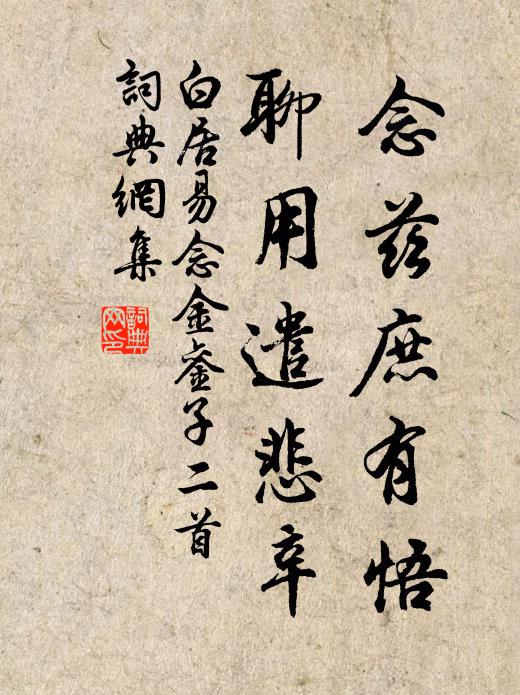 念茲庶有悟
聊用遣悲辛
白居易念金鑾子二首
詞典網集
詞典網印